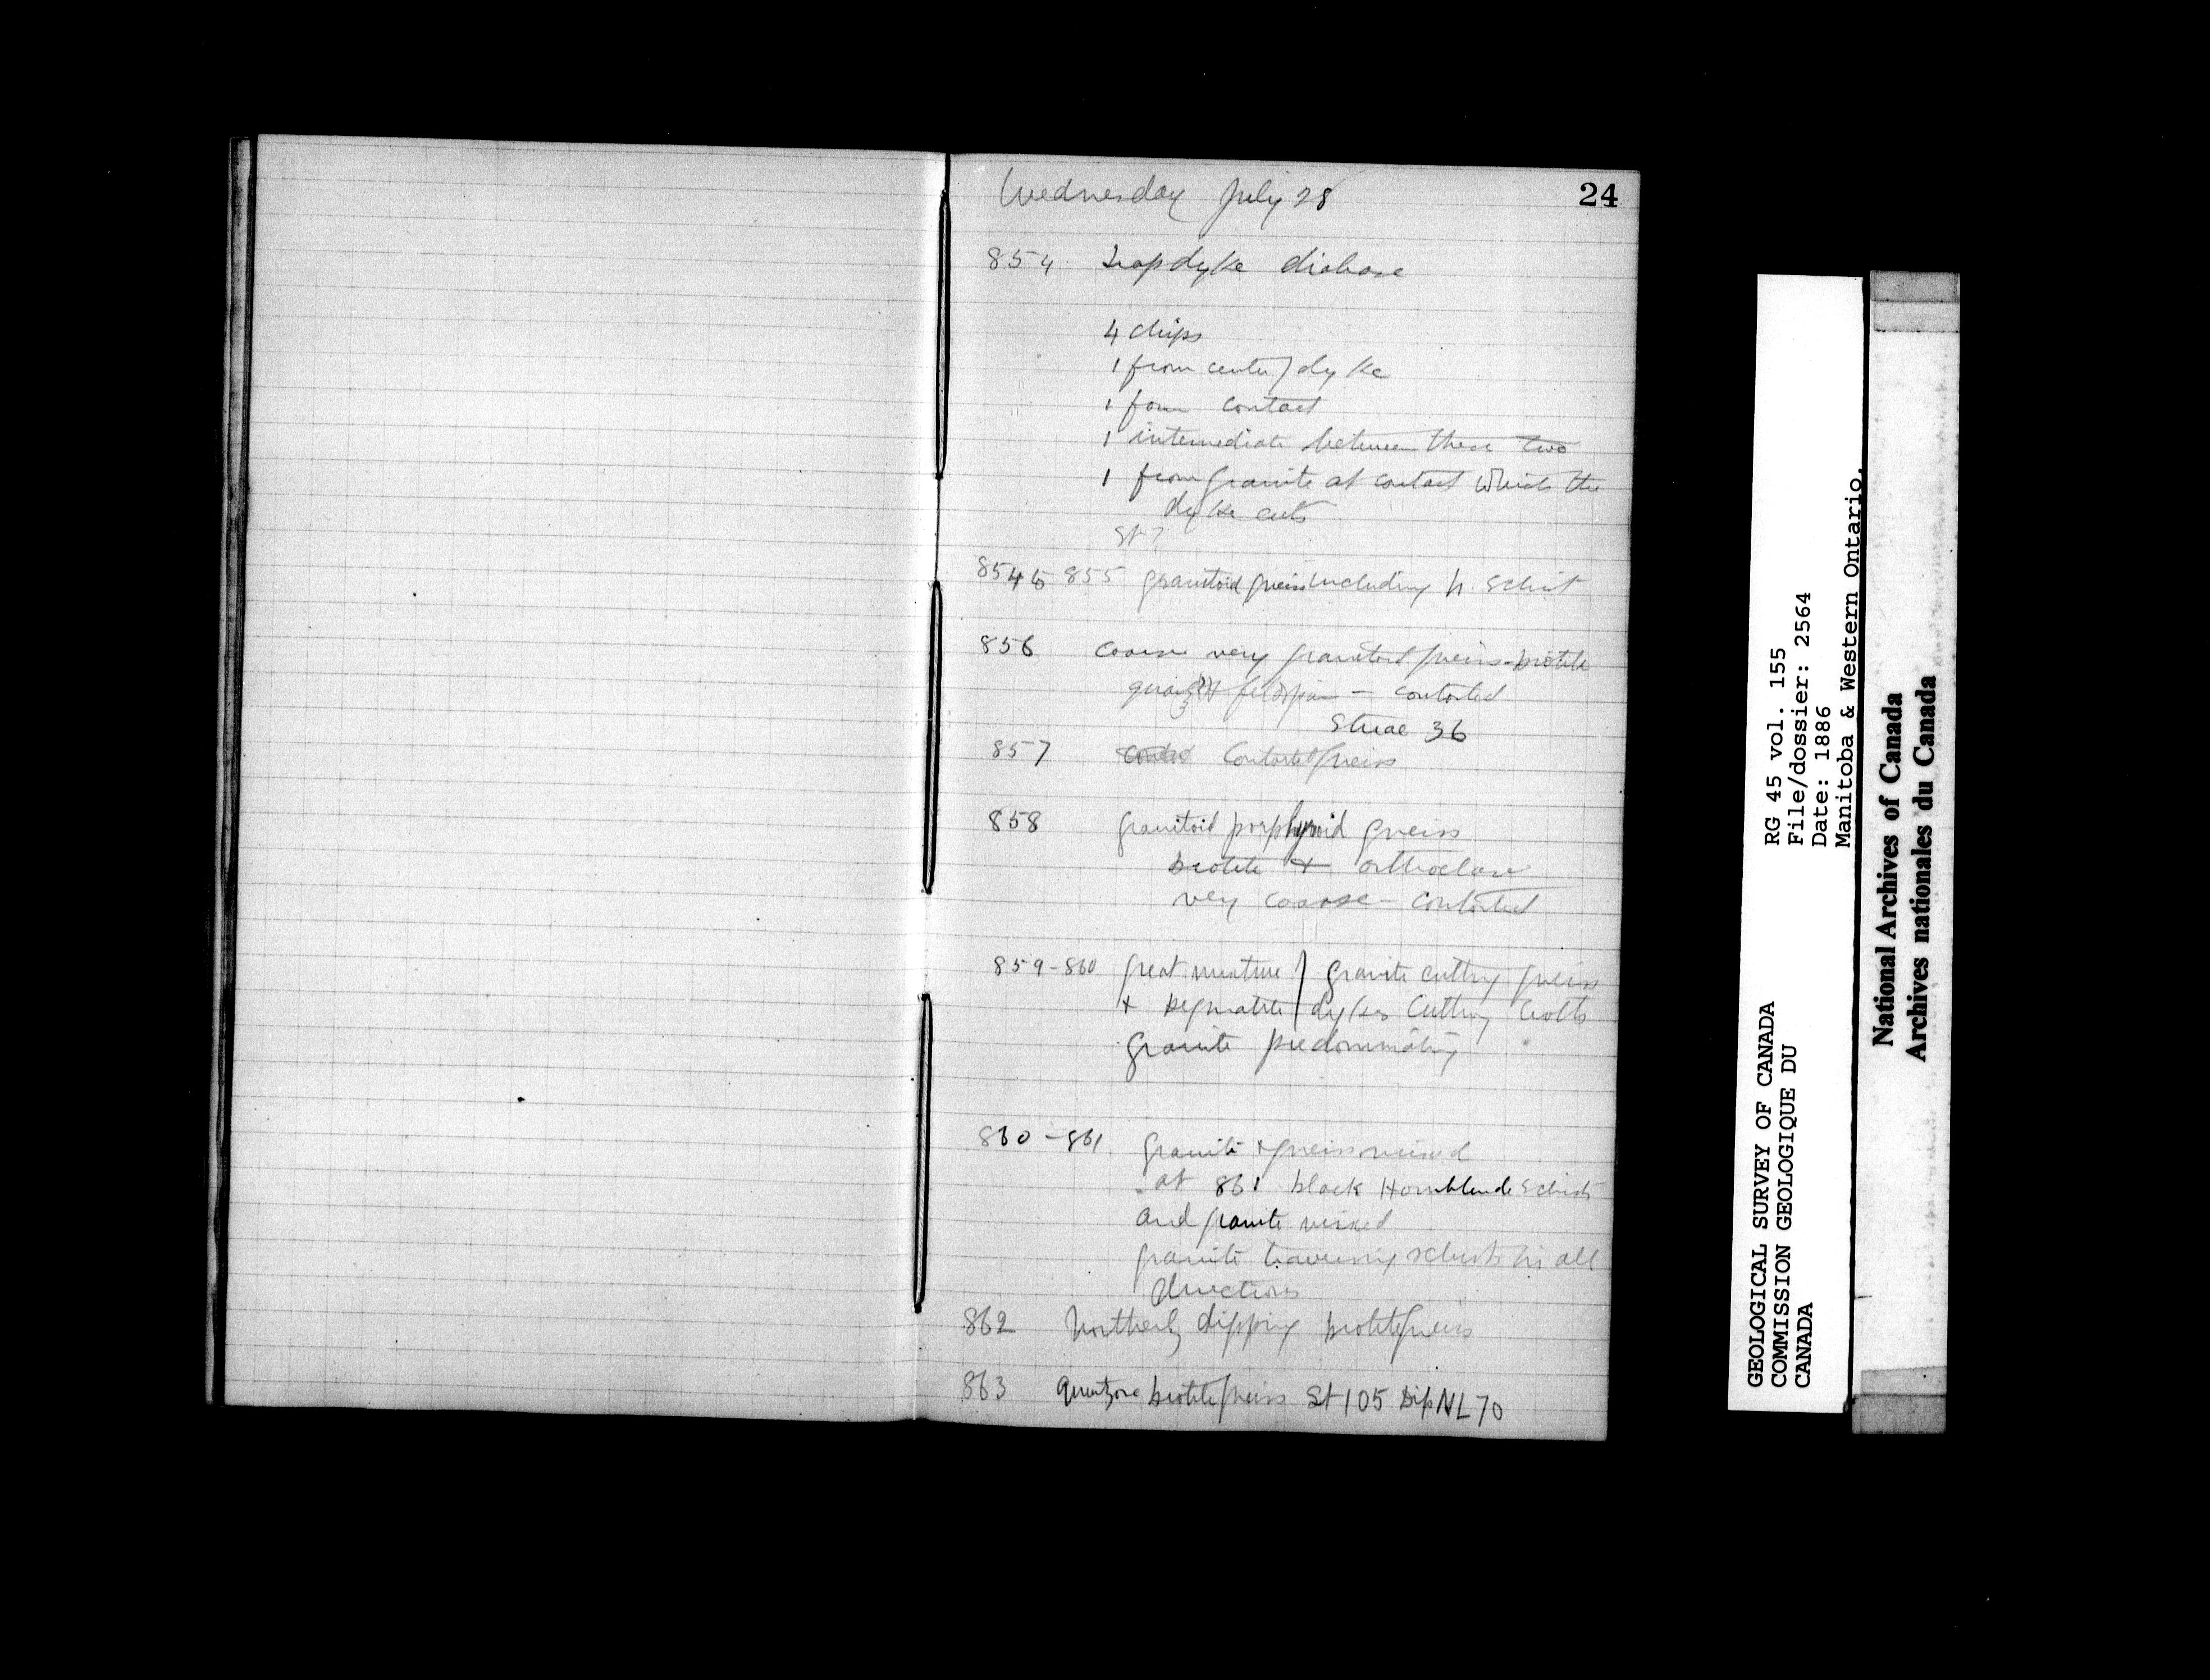 24
Wednesday July 28
854 Trap dyke diabase
4 chips
1 from center of dyke
1 from contact
1 intermediate between these two
1 from granite at contact which the
dyke cuts
St?
854 to 855 granitoid gneiss including h. schist
856 coarse very granitoid gneiss - biotite
quartz & feldspar - contorted
Striae 36
857 Contorted gneiss
858 granitoid porphyroid gneiss
biotite & orthoclase
very coarse - contorted
859-860 great mixture of granite cutting gneiss
& pegmatite dykes cutting both
granite predominating
860-861 granite & gneiss mixed
at 861 black Hornblende schists
and granite mixed
granite traversing schists in all
directions
862 Northerly dipping biotite gneiss
863 quartzose biotite gneiss St 105 Dip NL70
GEOLOGICAL SURVEY OF CANADA
COMMISSION GEOLOGIQUE DU
CANADA
RG 45 vol. 155
File/dossier: 2564
Date: 1886
Manitoba & Western Ontario.
National Archives of Canada
Archives nationales du Canada